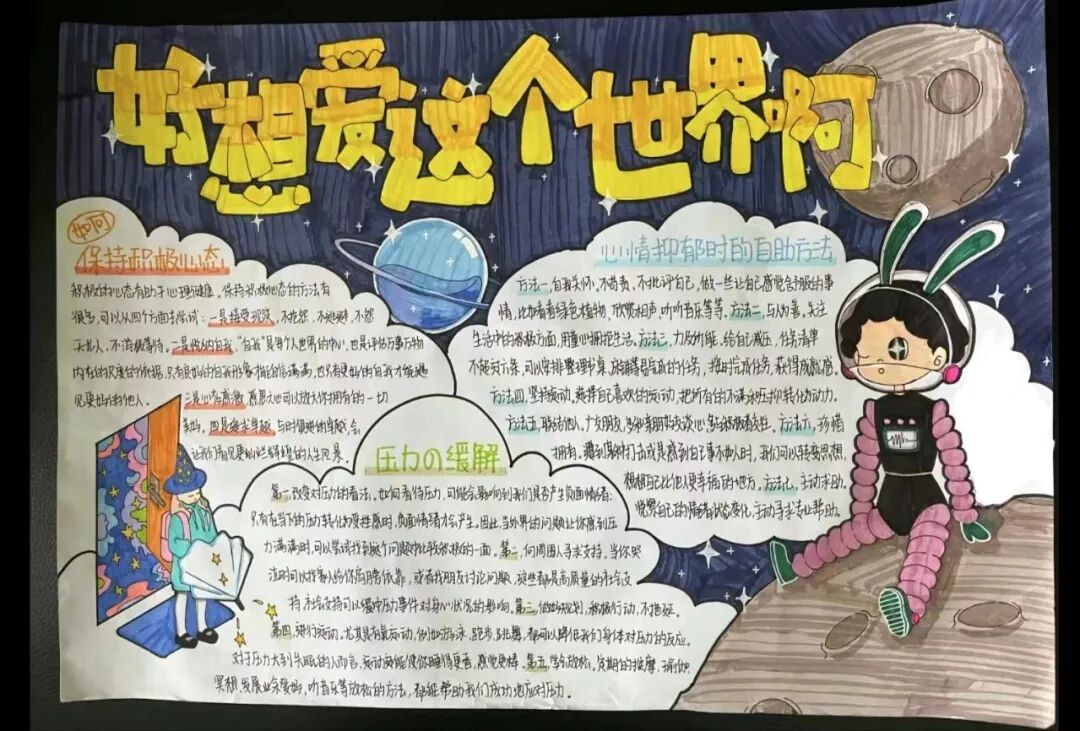 好想爱这个世界啊
如何
保持积极心态
积极的心态有助于心理健康，保持积极心态的方法有
很多，可以从四个方面去尝试：一是接受现实，不抱怨，不
天尤人，不消极等待。二是做好自我，"自我"是每个人世界的中心，也是评估万事万物
内在的尺度的依据，只有良好的自我形象才能自信满满，也只有更好的自我才能遇
见更好的他人。三是心存感激，感恩之心可以放大你拥有的一切
美好。四是追求卓越，与时俱进的卓越，会
让我们看见更好、更辉煌的人生风景。
心情抑郁时的自助方法
方法一，自我关怀，不苛责，不批评自己，做一些让自己感觉舒服的事
情，比如看看绿色植物、欣赏相声、听听音乐等等。方法二，与人为善，关注
生活中的积极方面，用童心拥抱生活。方法三，力所能及，给自己减压，任务清单
不超负荷，可以安排整理衣橱、房间等易完成的任务，按时完成任务，获得成就感。
方法四，坚持运动，选择自己喜欢的运动，把所有的不满和压抑转化为动力。
方法五，联络他人，广交朋友，多和亲朋好友谈心，多和积极者交往。方法六，珍惜
拥有，遇到挫折打击或是感到自己事不如人时，我们可以转变思想，
想想自己比他人更幸福的地方。方法七，主动求助，
觉察自己的情绪状态变化，主动寻求专业帮助。
压力の缓解
第一，改变对压力的看法。如何看待压力，可能会影响到我们是否产生负面情绪：
只有在当下的压力转化为受威胁时，负面情绪才会产生。因此，当外界的问题让你感到压
力满满时，可以尝试找到这个问题中比较积极的一面。第二，向周围人寻求支持。当你哭
泣时可以找家人给你肩膀依靠，或者找朋友讨论问题，这些都是高质量的社会支
持，社会支持可以缓冲压力事件对身心状况的影响。第三，做好规划，积极行动，不拖延。
第四，进行运动，尤其是有氧运动，例如游泳、跑步、跳舞，都可以降低我们身体对压力的反应。
对于压力大到失眠的人而言，运动还能使你睡得更香，感觉更棒。第五，学会放松。定期的按摩、瑜伽、
冥想、发展业余爱好、听音乐等放松的方法，都能帮助我们成功地应对压力。